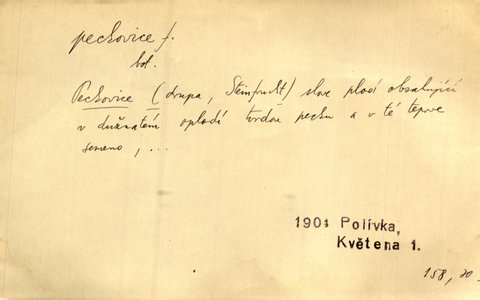 peckovice f.
bot.
Peckovice (drupa, Steinfrucht) slove plod obsahující
v dužnatém oplodí tvrdou pecku a v té teprve
semeno, ...
1901 Polívka,
Květena 1.
158, 30